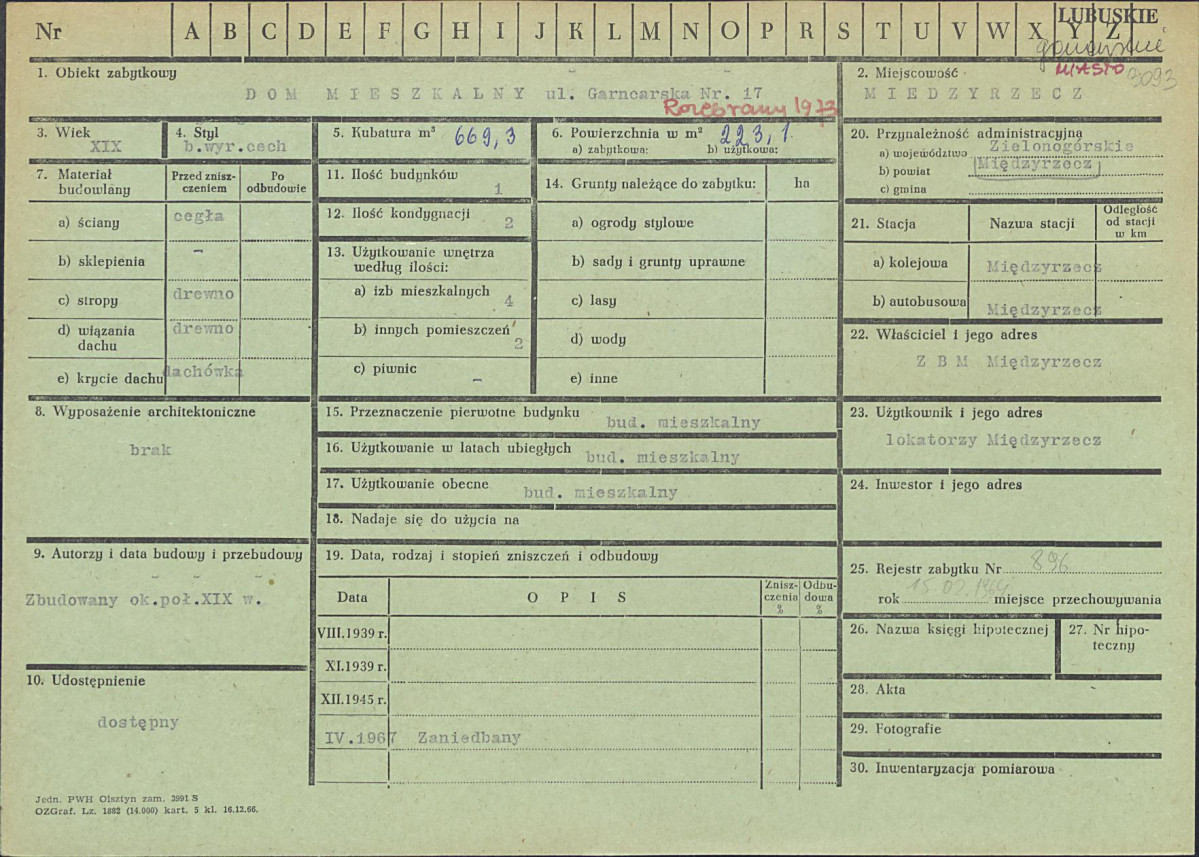 Nr A B C D E F G H I J K L M N O P R S T U V W X Y Z
LUBUSKIE
MIASTO 3093
1. Obiekt zabytkowy
DOM MIESZKALNY ul. Garncarska Nr. 17
Rozebrany 1973
2. Miejscowość
MIEDZYRZECZ
3. Wiek
XIX
4. Styl
b.wyr.cech
5. Kubatura m³ 669,3
6. Powierzchnia w m² 223,1.
a) zabytkowa: b) użytkowa:
20. Przynależność administracyjna
a) województwo Zielonogórskie
b) powiat Międzyrzecz
c) gmina
7. Materiał budowlany
Przed zniszczeniem
Po odbudowie
a) ściany cegła
b) sklepienia –
c) stropy drewno
d) wiązania dachu drewno
e) krycie dachu dachówka
11. Ilość budynków
1
12. Ilość kondygnacji
2
13. Użytkowanie wnętrza według ilości:
a) izb mieszkalnych
4
b) innych pomieszczeń
2
c) piwnic
–
14. Grunty należące do zabytku: ha
a) ogrody stylowe
b) sady i grunty uprawne
c) lasy
d) wody
e) inne
21. Stacja
Nazwa stacji
Odległość od stacji w km
a) kolejowa Międzyrzecz
b) autobusowa Międzyrzecz
22. Właściciel i jego adres
Z B M Międzyrzecz
8. Wyposażenie architektoniczne
brak
15. Przeznaczenie pierwotne budynku
bud. mieszkalny
16. Użytkowanie w latach ubiegłych
bud. mieszkalny
17. Użytkowanie obecne
bud. mieszkalny
18. Nadaje się do użycia na
23. Użytkownik i jego adres
lokatorzy Międzyrzecz
24. Inwestor i jego adres
9. Autorzy i data budowy i przebudowy
Zbudowany ok.poł.XIX w.
19. Data, rodzaj i stopień zniszczeń i odbudowy
Data
O P I S
Zniszczenia %
Odbudowa %
VIII.1939 r.
XI.1939 r.
XII.1945 r.
IV.1967 Zaniedbany
25. Rejestr zabytku Nr 896
rok 15.02.1964 miejsce przechowywania
26. Nazwa księgi hipotecznej
27. Nr hipoteczny
10. Udostępnienie
dostępny
28. Akta
29. Fotografie
30. Inwentaryzacja pomiarowa
Jedn. PWH Olsztyn zam. 3991 S
OZGraf. Lz. 1882 (14.000) kart. 5 kl. 16.12.66.